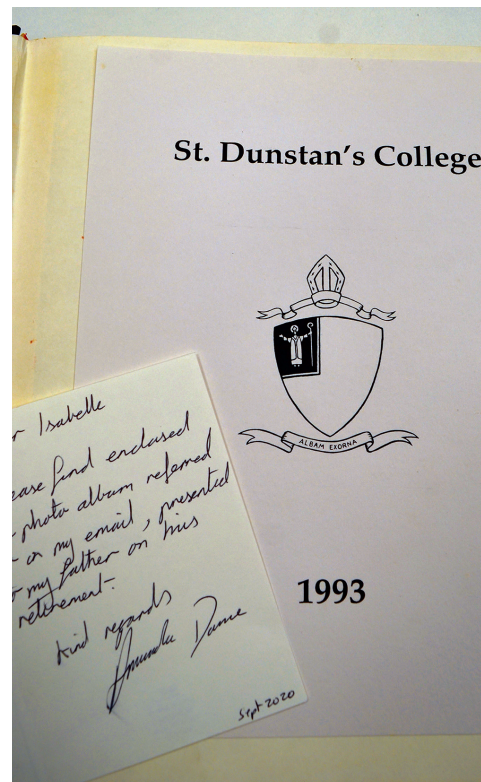 St. Dunstan's College
ALBAM EXORNA
1993
r Isabelle
ease find enclosed
photo album referred
in my email, presented
my father on his
retirement.
Kind regards
Amanda
Sept 2020